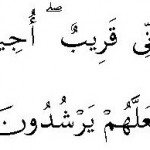 نِّي قَرِيبٌ ۖ أُجِي
عَلَّهُمْ يَرْشُدُونَ